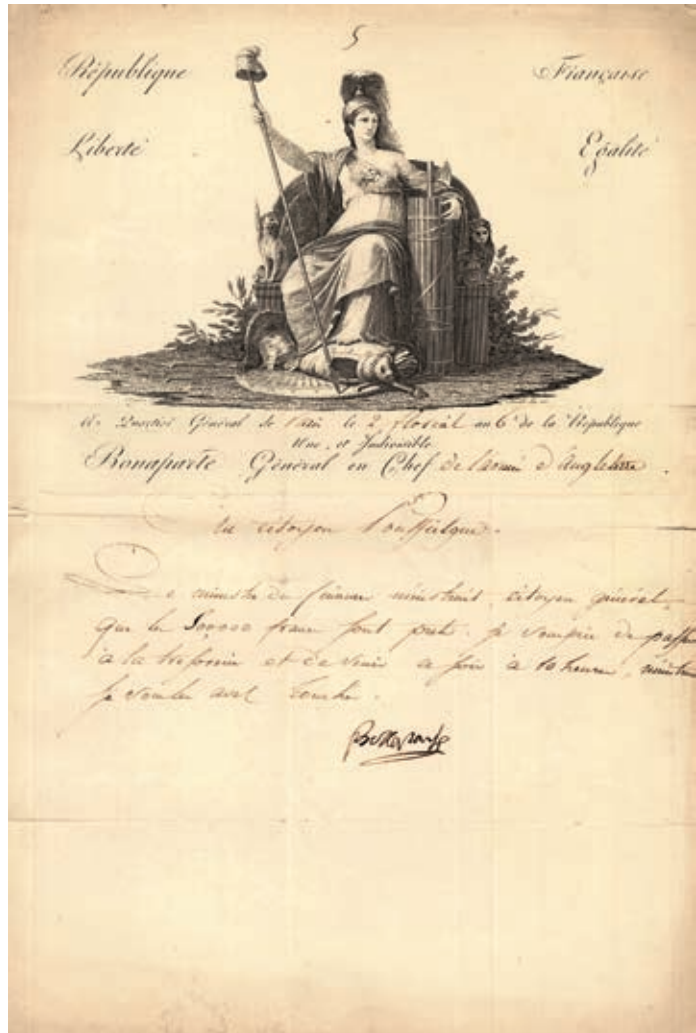 5
République Française
Liberté Egalité
Au Quartier Général de Paris le 2 floréal an 6e de la République
Une et Indivisible
Bonaparte Général en Chef de l'armée d'Angleterre
Au citoyen Poussielgue.
Le ministre des finances m'instruit, citoyen général,
que les francs sont prêts. je vous prie de passer
à la trésorerie et de venir ce soir à 10 heures
je vous
Bonaparte